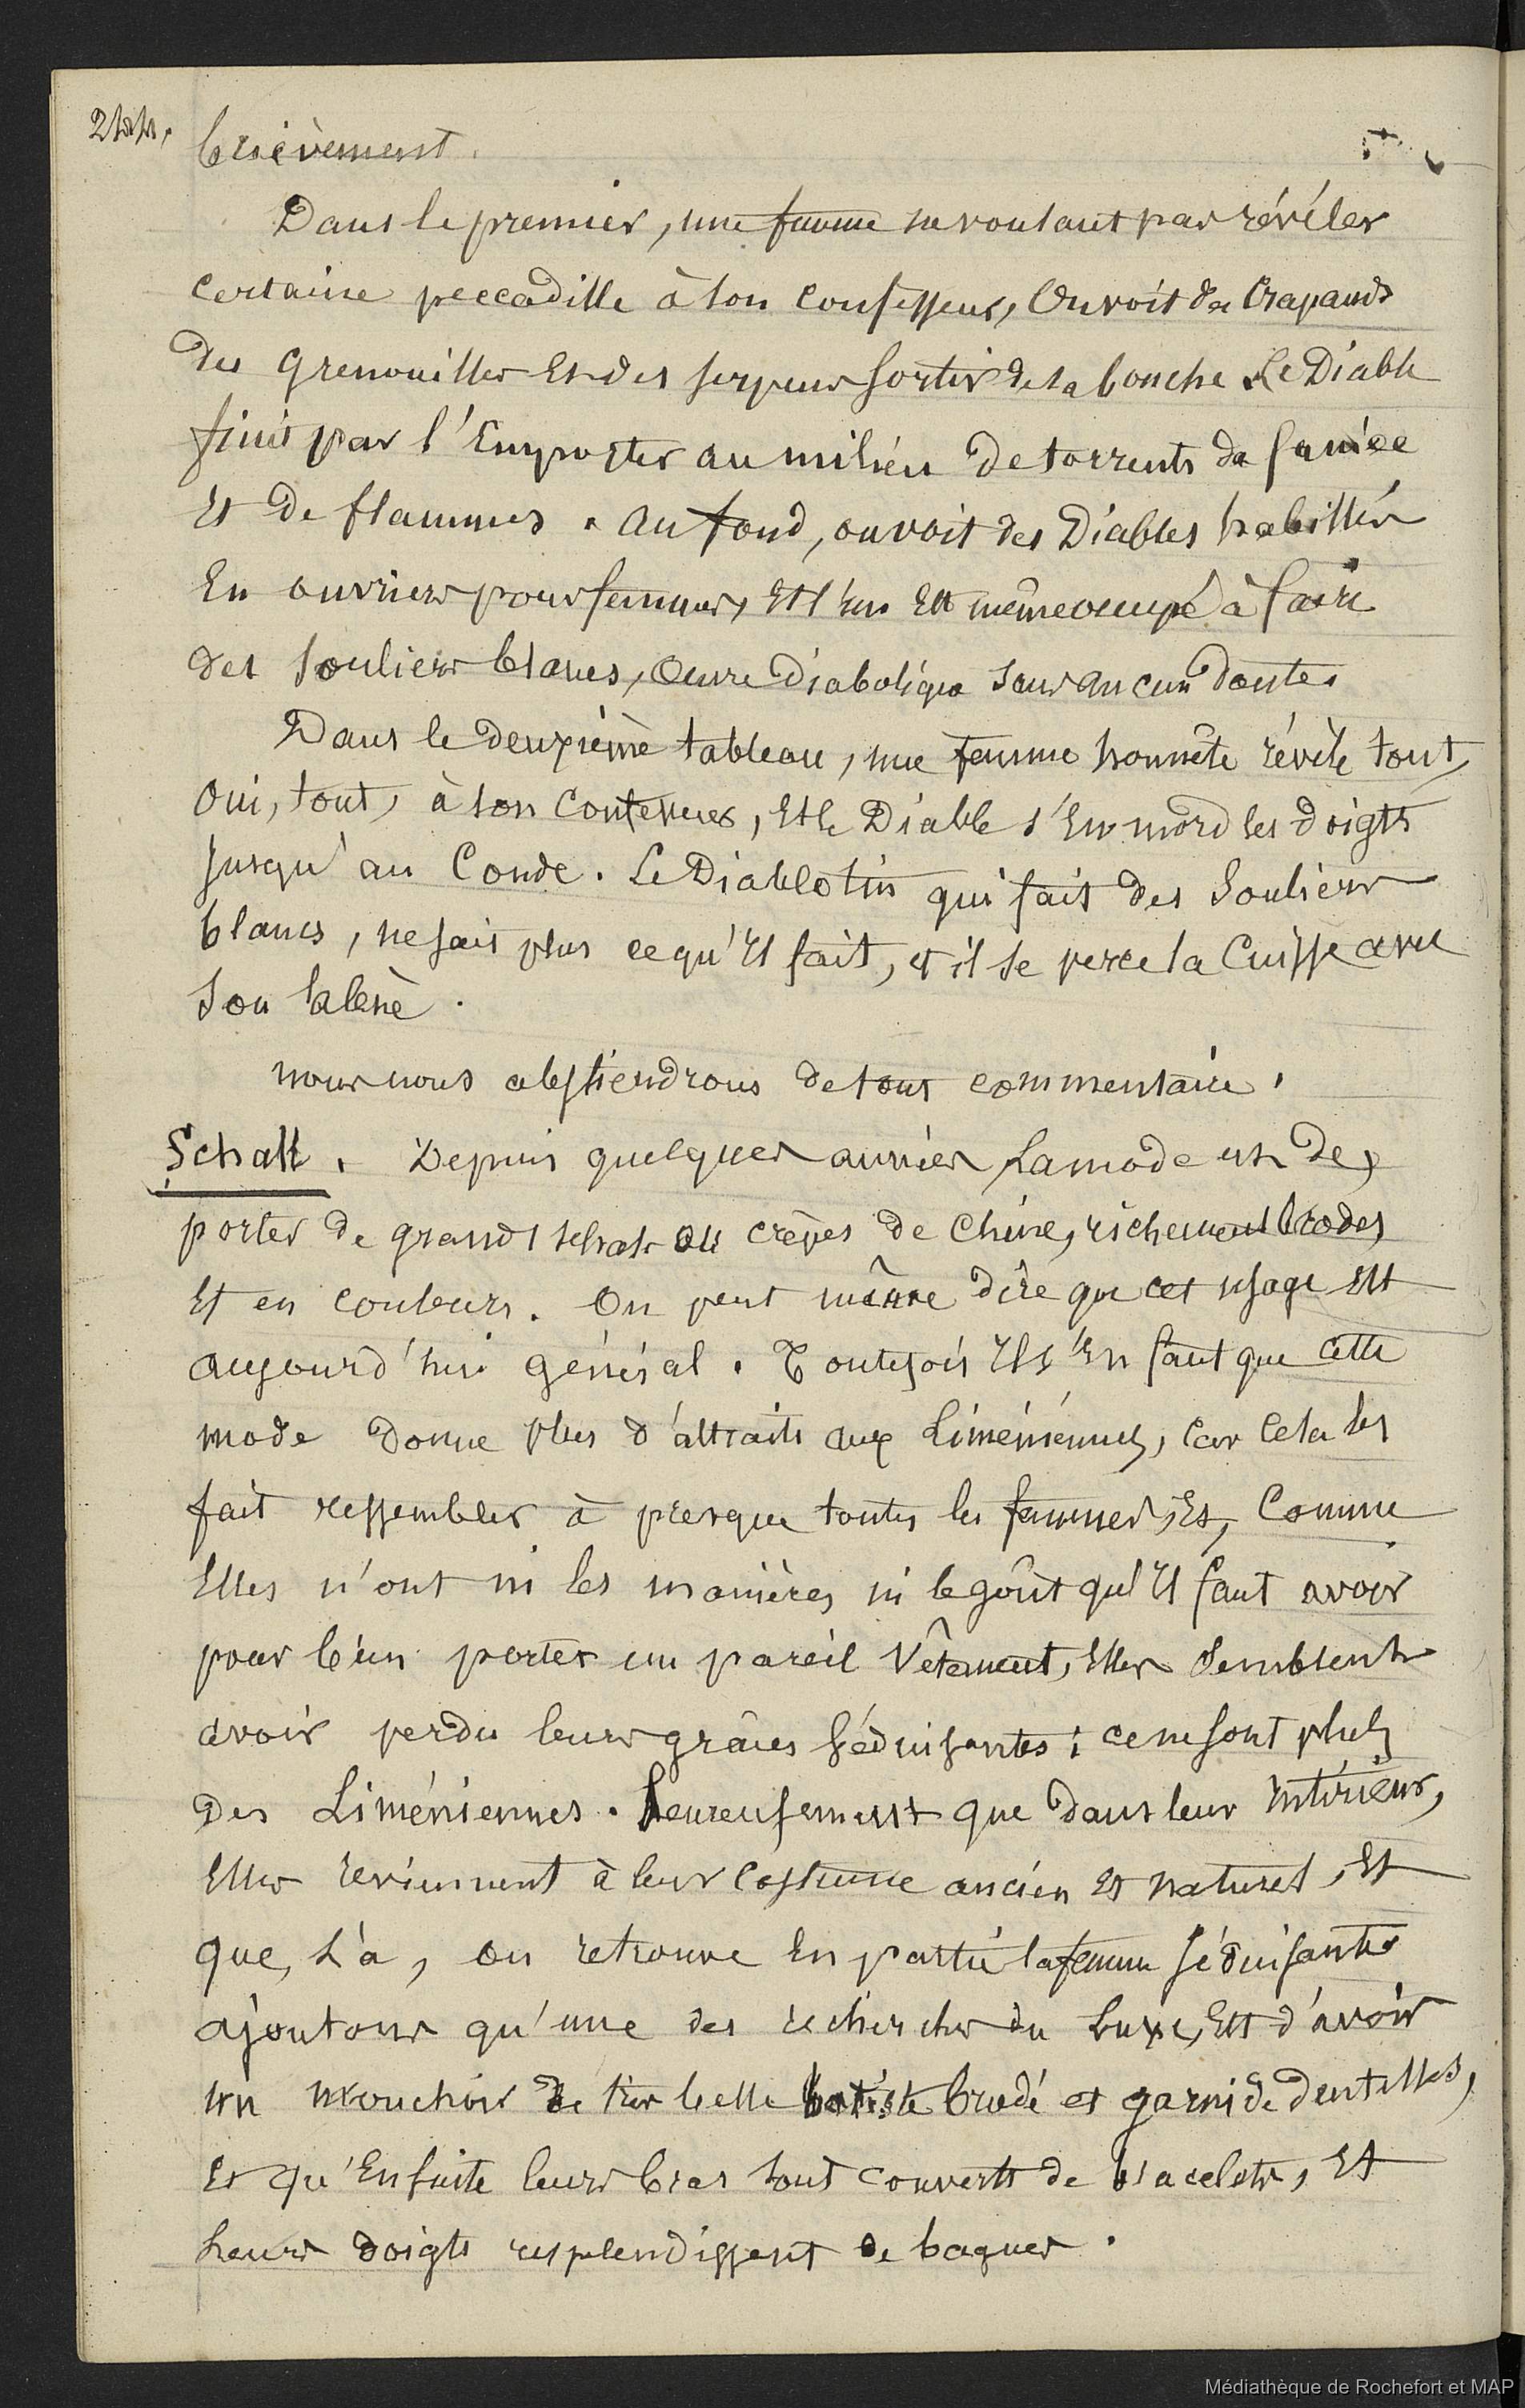 244.
brièvement.
Dans le premier, une femme ne voulant pas révéler
certaine peccadille à son confesseur, On voit des Crapauds
des Grenouilles Et des serpens sortir de sa bouche Le Diable
finit par l'Emporter au milieu de torrents de fumée
Et De flammes. Au fond, on voit des Diables habillés
En ouvriers pour femmes, Et l'un Est même occupé à faire
des Souliers blancs, Œuvre Diabolique sans aucun Doute.
Dans le deuxième tableau, une femme honnête révèle tout,
Oui, tout, à son Confesseur, Et le Diable s'En mord les doigts
Jusqu'au Coude. Le Diablotin qui fait des Souliers
blancs, ne sait plus ce qu'Il fait, et il se perce la Cuisse avec
son halène.
Nous nous abstiendrons de tout commentaire.
Schall. Depuis quelques années, La mode est de
porter de grands schals ou crêpes de Chine, richement brodés
Et en couleurs. On peut même dire que cet usage Est
aujourd'hui général. Toutefois Il s'En faut que cette
mode donne plus d'attraits aux Liméniennes, Car Cela les
fait ressembler à presque toutes les femmes, Et, Comme
Elles n'ont ni les manières ni le goût qu'Il faut avoir
pour bien porter un pareil Vêtement, Elles Semblent
avoir perdu leurs grâces Séduisantes; ce ne sont plus
Des Liméniennes. Heureusement que dans leur Intérieur,
Elles reviennent à leur Costume ancien Et naturel, Et
que, Là, on retrouve En partie la femme Séduisante
ajoutons qu'une des recherches du Luxe, Est d'avoir
un mouchoir de très belle batiste brodé et garni de dentelles,
Et qu'Ensuite leurs bras sont couverts de bracelets, Et
Leurs doigts resplendissent de bagues.
Médiathèque de Rochefort et MAP